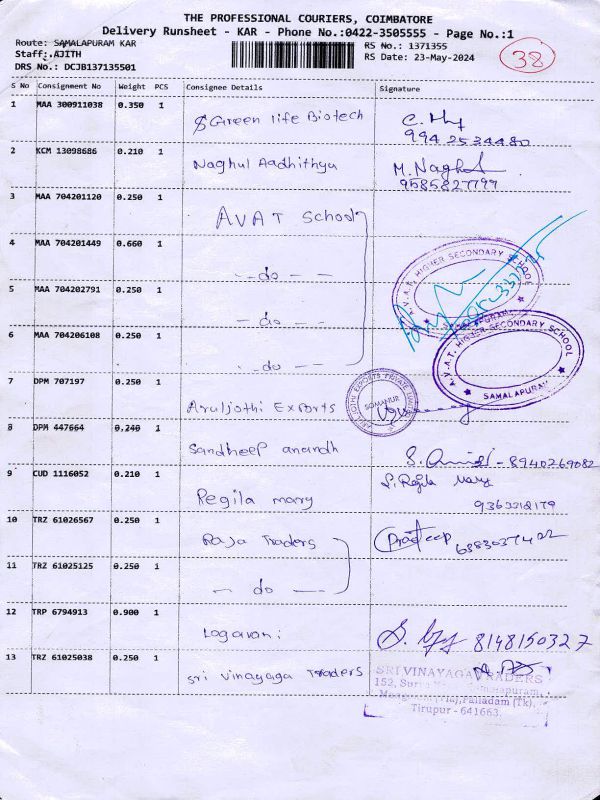 THE PROFESSIONAL COURIERS, COIMBATORE
Delivery Runsheet - KAR - Phone No.:0422-3505555 - Page No.:1
Route: SAMALAPURAM KAR
Staff: AJITH
DRS No.: DCJB137135501
RS No.: 1371355
RS Date: 23-May-2024
38
S No Consignment No Weight PCS Consignee Details Signature
1 MAA 300911038 0.350 1 Green life Biotech
9942534480
2 KCM 13098686 0.210 1 Naghul Aadhithya M. Naghul
9585827799
3 MAA 704201120 0.250 1 AVAT School
4 MAA 704201449 0.660 1 - do - -
A.V.A.T. HIGHER SECONDARY SCHOOL
SAMALAPURAM
5 MAA 704202791 0.250 1 - do - -
6 MAA 704206108 0.250 1 - do - -
A.V.A.T. HIGHER SECONDARY SCHOOL
SAMALAPURAM
7 DPM 707197 0.250 1 Aruljothi Exports
ARULJOTHI EXPORTS PRIVATE LIMITED
SOMANUR
8 DPM 447664 0.240 1 Sandheep anandh
8940269082
9 CUD 1116052 0.210 1 Regila mary S. Regila Mary
10 TRZ 61026567 0.250 1 Raja Traders Pradeep
11 TRZ 61025125 0.250 1 - do -
12 TRP 6794913 0.900 1 Logavani
8148150327
13 TRZ 61025038 0.250 1 Sri Vinayaga Traders
SRI VINAYAGA TRADERS
152, Samalapuram,
Palladam (Tk),
Tirupur - 641663.